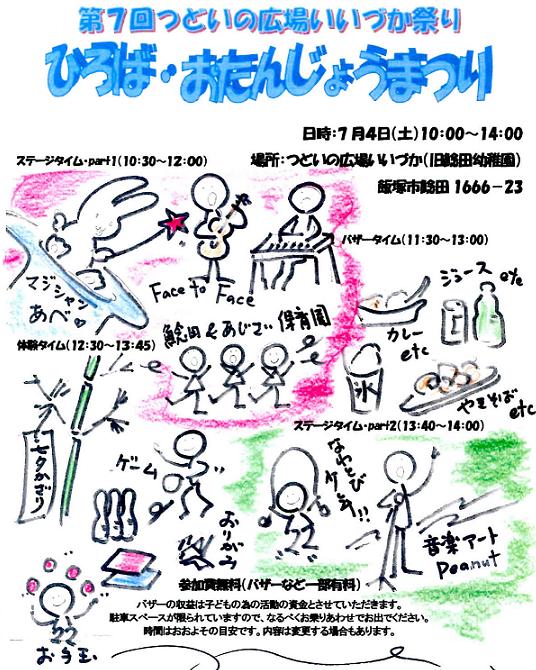 第7回つどいの広場いいづか祭り
ひろば・おたんじょうまつり
日時:7月4日(土)10:00～14:00
場所:つどいの広場いいづか(旧鯰田幼稚園)
飯塚市鯰田1666－23
ステージタイム・part1(10:30～12:00)
マジシャン
あべ
Face to Face
鯰田&あじさい保育園
バザータイム(11:30～13:00)
ジュース etc
カレー
etc
氷
やきそば
etc
体験タイム(12:30～13:45)
七夕かざり
ゲーム
おりがみ
お手玉
ステージタイム・part2(13:40～14:00)
なわとび
音楽アート
Peanut
参加費無料(バザーなど一部有料)
バザーの収益は子どもの為の活動の資金とさせていただきます。
駐車スペースが限られていますので、なるべくお乗りあわせでお出でください。
時間はおおよその目安です。内容は変更する場合もあります。